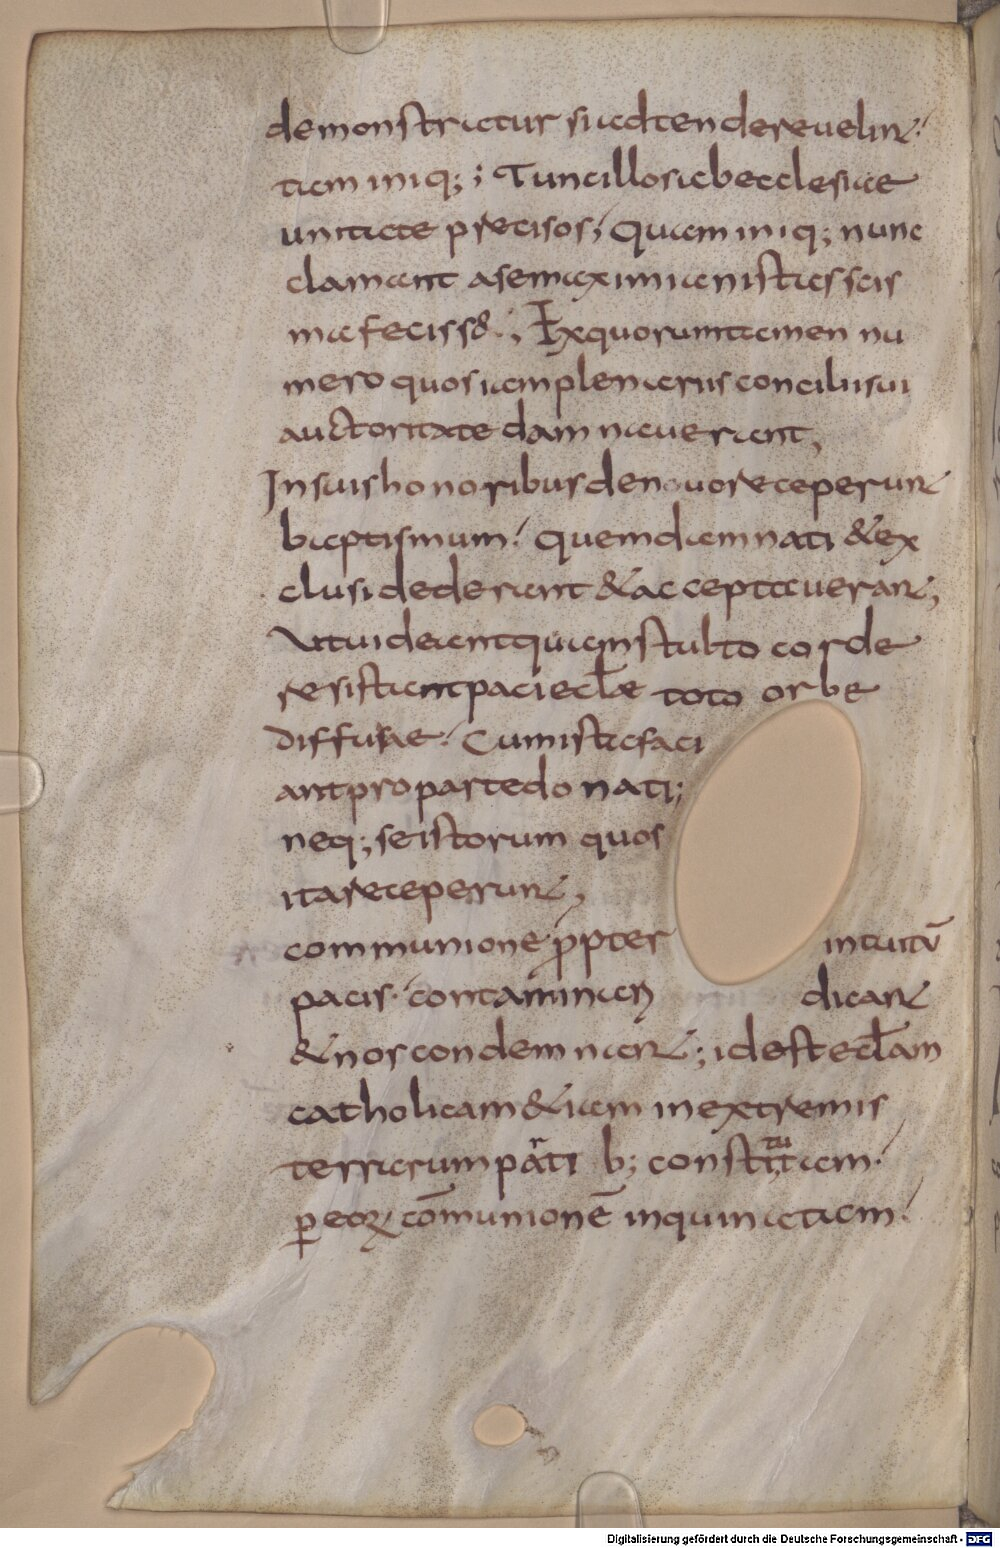 demonstratur si adtendere uelint.
tam iniq; ; Tunc illos ab ecclesiae
unitate precisos, quam iniq; nunc
clamant a se maximianistas scis
ma fecisse ; Ex quorum tamen nu
mero quos iam plenarii concilii sui
auctoritate damnauerant,
In suis honoribus denuo receperunt
baptismum. quem damnati & ex
clusi dederant & acceptauerant,
Ut uideant quam stulto corde
resistant paci eclae toto orbe
diffusae. Cum ista faci
ant pro parte donati;
neq; se istorum quos
ita receperunt,
communione ppter intuitū
pacis. contaminari dicant
& nos condemnant; idest eclam
catholicam & iam in extremis
terrarum partib; constitutam.
p eoꝝ com̄unionē inquinatam.
Digitalisierung gefördert durch die Deutsche Forschungsgemeinschaft - DFG